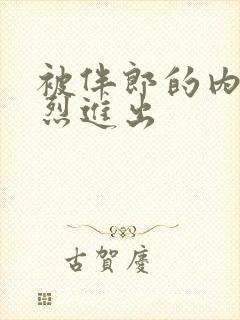 被伴郎的内
烈进出
古賀慶